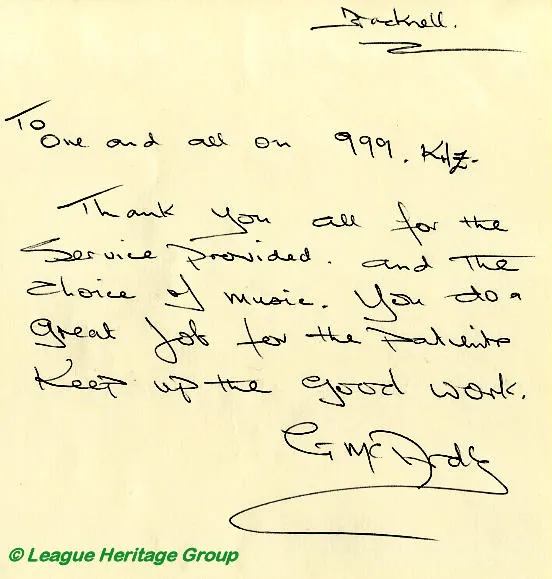 Bracknell.
To
One and all on 999. KHZ.
Thank you all for the
Service provided. and The
choice of music. You do a
great job for the patients
Keep up the good work.
G McArdle
© League Heritage Group